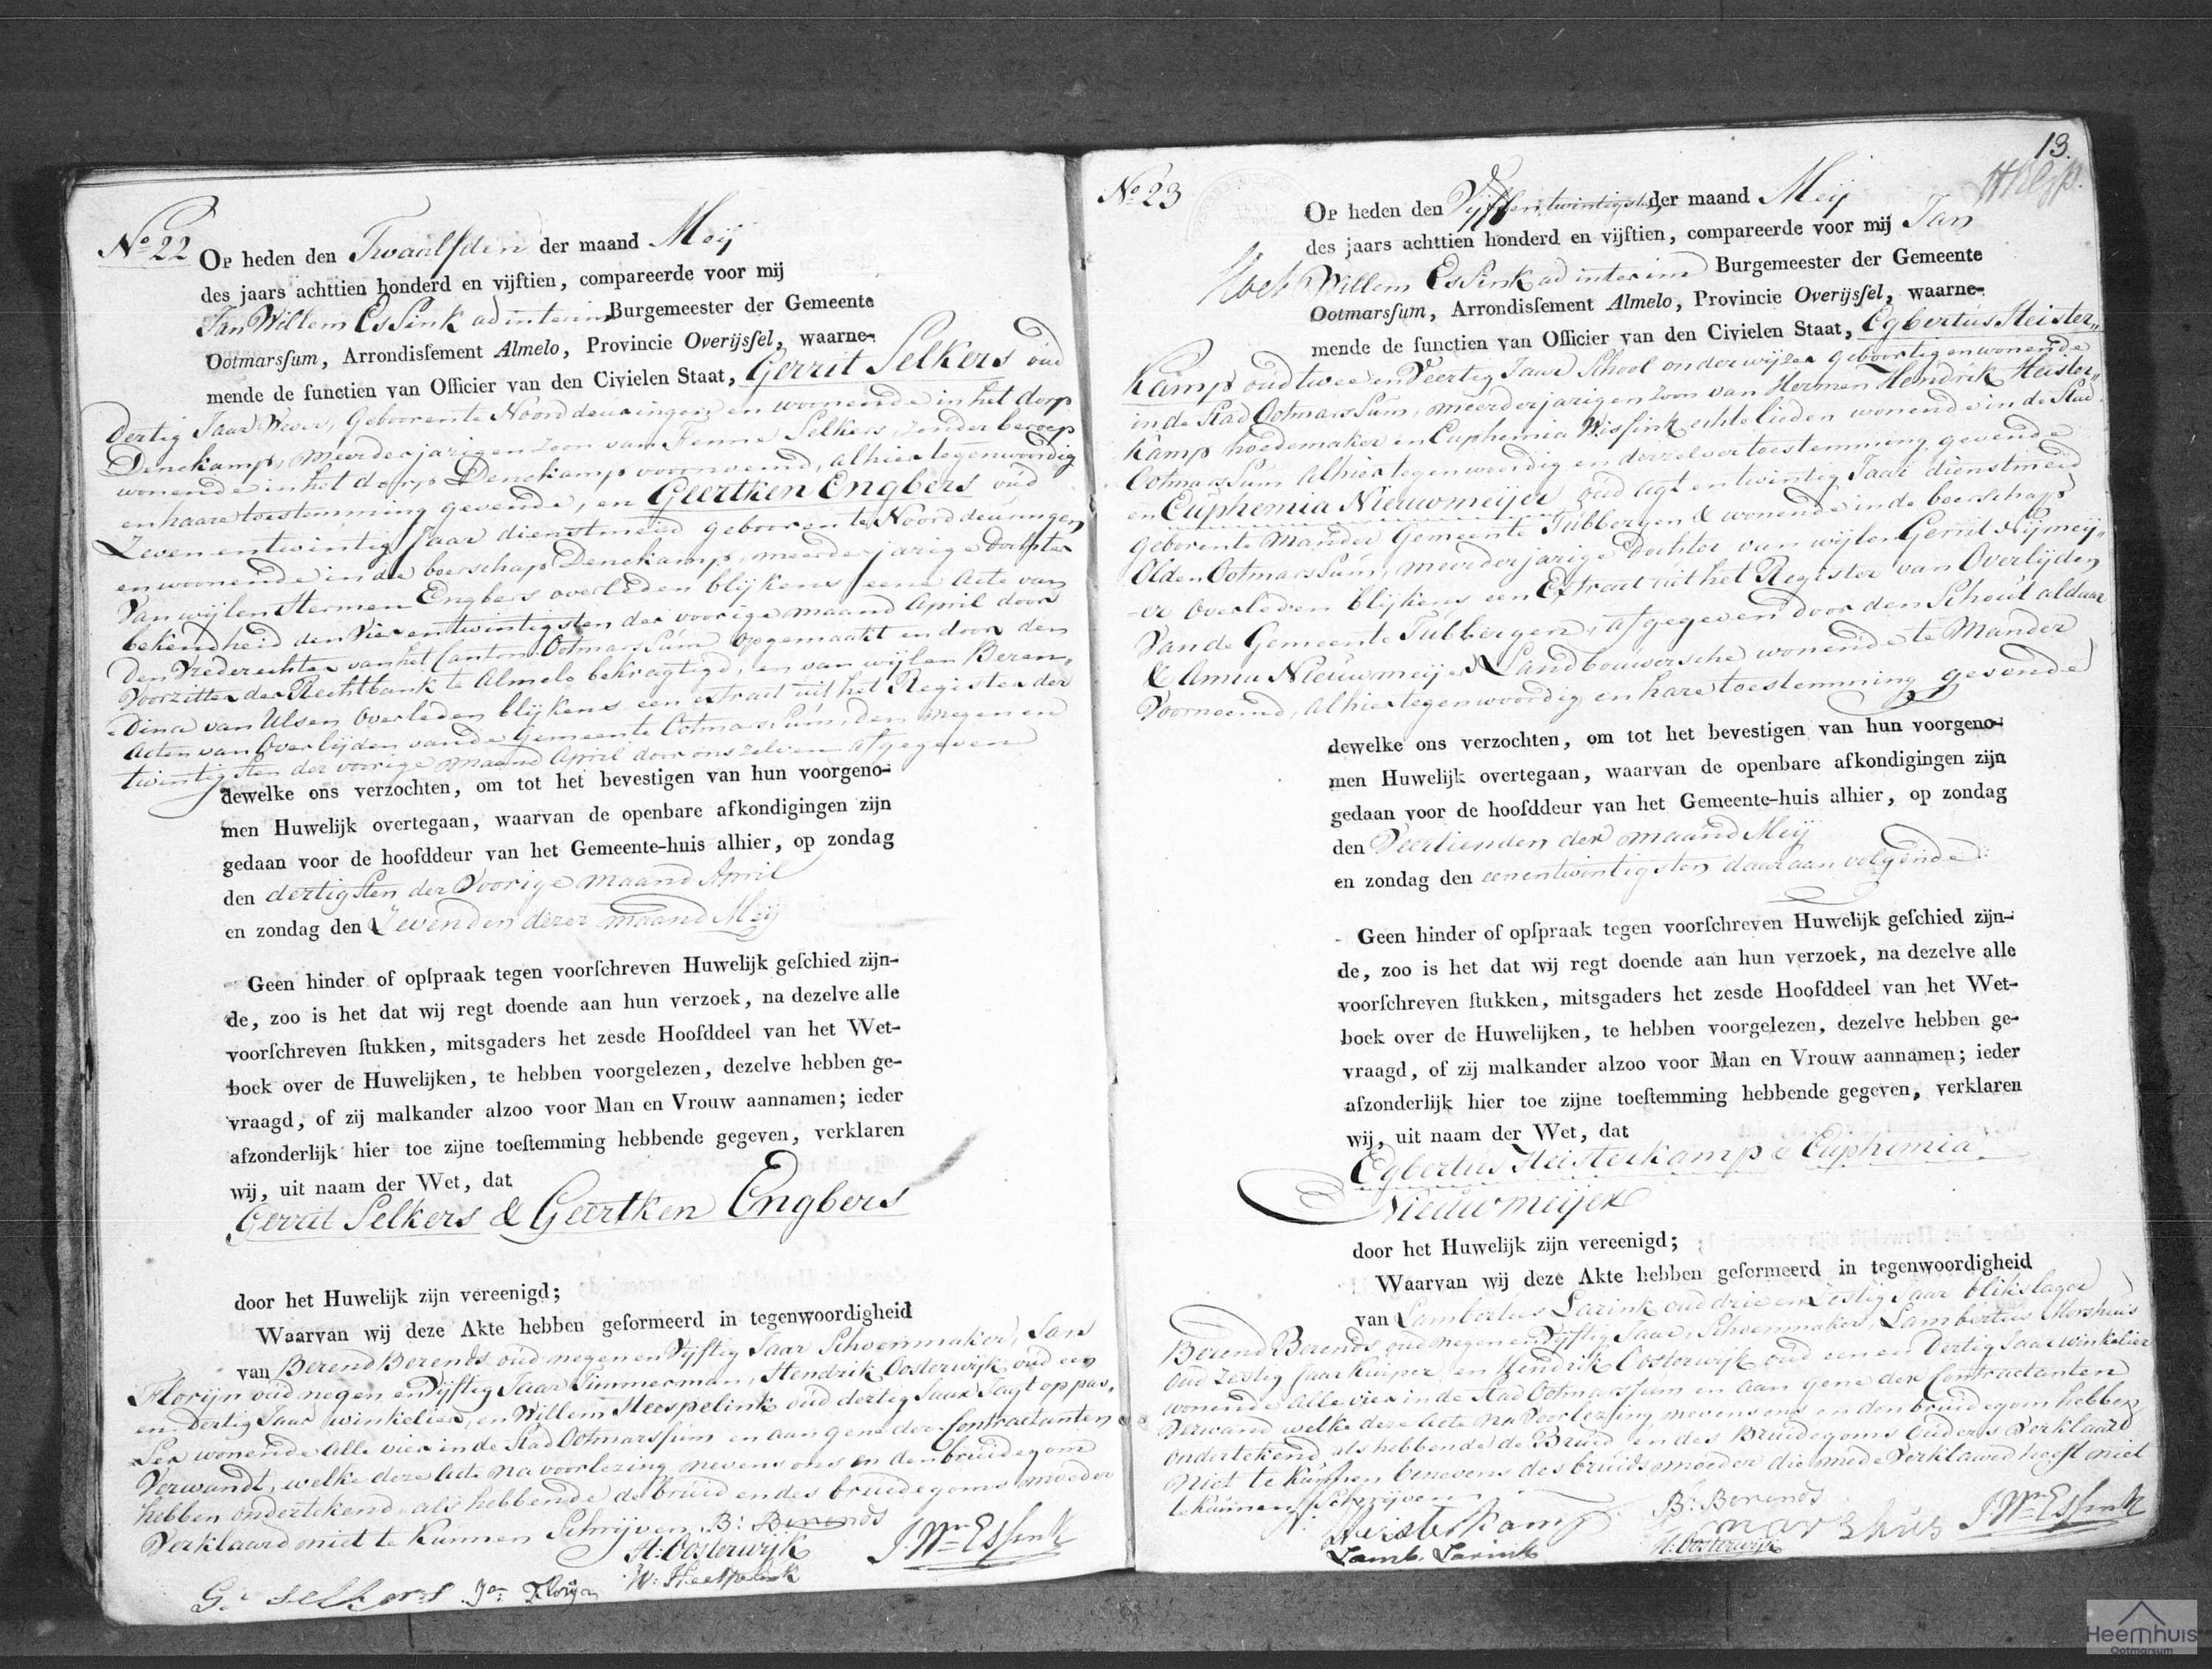 No 22
Op heden den Twaalfden der maand Meij
des jaars achttien honderd en vijftien, compareerde voor mij
Jan Willem Essink ad interim Burgemeester der Gemeente
Ootmarsſum, Arrondisſement Almelo, Provincie Overijsſel, waarne-
mende de functien van Officier van den Civielen Staat, Gerrit Selkers oud
dertig Jaar Wever, Geboren te Noorddeuringen en woonende in het dorp
Denekamp, meerderjarigen Zoon van Fenne Selkers, zonder beroep
wonende in het dorp Denekamp voornoemd, alhier tegenwoordig
en haare toestemming gevende, en Geertken Engbers oud
Zeven en twintig Jaar dienstmeid geboren te Noorddeuringen
en woonende in de boerschap Denekamp, meerderjarige Dochter
van wijlen Hermen Engbers overleden blijkens eene Acte van
bekendheid den Vier en twintigsten der voorige maand April door
den Vrederechter van het Canton Ootmarssum opgemaakt en door den
Voorzitter der Rechtbank te Almelo bekragtigd, en van wijlen Beren„
dina van Ulsen Overleden blijkens een extract uit het Register der
Acten van Overlijden van de Gemeente Ootmarssum, den negen en
twintigsten der voorige maand April door ons zelven afgegeven
dewelke ons verzochten, om tot het bevestigen van hun voorgeno-
men Huwelijk overtegaan, waarvan de openbare afkondigingen zijn
gedaan voor de hoofddeur van het Gemeente-huis alhier, op zondag
den dertigsten der Voorige maand April
en zondag den Zevenden dezer maand Meij
Geen hinder of opſpraak tegen voorſchreven Huwelijk geſchied zijn-
de, zoo is het dat wij regt doende aan hun verzoek, na dezelve alle
voorſchreven ſtukken, mitsgaders het zesde Hoofddeel van het Wet-
boek over de Huwelijken, te hebben voorgelezen, dezelve hebben ge-
vraagd, of zij malkander alzoo voor Man en Vrouw aannamen; ieder
afzonderlijk hier toe zijne toeſtemming hebbende gegeven, verklaren
wij, uit naam der Wet, dat
Gerrit Selkers & Geertken Engbers
door het Huwelijk zijn vereenigd;
Waarvan wij deze Akte hebben geformeerd in tegenwoordigheid
van Berend Berends oud negen en Vijftig Jaar Schoenmaker, Jan
Florijn oud negen en Vijftig Jaar Timmerman, Hendrik Oosterwijk oud een
en Dertig Jaar winkelier, en Willem Heespelink oud dertig Jaar Jagt oppas„
ser wonende Alle vier in de Stad Ootmarssum en aan gene der Contractanten
Verwandt, welke deze Acte na voorlezing nevens ons en den bruidegom
hebben ondertekend, als hebbende de bruid en des bruidegoms moeder
Verklaard niet te Kunnen Schrijven B: Berends
H: Oosterwijk J. Wm Essink
G. selkers Jan Florijn W: Heespelink
13.
No 23
Op heden den Vijf en twintigsten der maand Meij
des jaars achttien honderd en vijftien, compareerde voor mij Jan
Willem Essink ad interim Burgemeester der Gemeente
Ootmarsſum, Arrondisſement Almelo, Provincie Overijsſel, waarne-
mende de functien van Officier van den Civielen Staat, Egbertus Heister„
Kamp oud twee en Veertig Jaar School onderwijzer geboortig en wonende
in de Stad Ootmarssum, meerderjarigen Zoon van Hermen Hendrik Heister„
kamp hoedemaker en Euphemia Wissink echtelieden wonende in de Stad
Ootmarssum Alhier tegenwoordig en derzelver toestemming gevende
en Euphemia Nieuwmeijer oud Agt en twintig Jaar dienstmeid
geboren te Mander Gemeente Tubbergen & wonende in de boerschap
Olden Ootmarssum, meerderjarige Dochter van wijlen Gerrit Nijmeij„
er Overleden blijkens een Extract uit het Register van Overlijden
Van de Gemeente Tubbergen, afgegeven door den Schout aldaar
& Anna Nieuwmeijer Landbouwersche wonende te Mander
Voornoemd, Alhier tegenwoordig en hare toestemming gevende
dewelke ons verzochten, om tot het bevestigen van hun voorgeno-
men Huwelijk overtegaan, waarvan de openbare afkondigingen zijn
gedaan voor de hoofddeur van het Gemeente-huis alhier, op zondag
den Veertienden der maand Meij
en zondag den een en twintigsten daar aan volgende
Geen hinder of opſpraak tegen voorſchreven Huwelijk geſchied zijn-
de, zoo is het dat wij regt doende aan hun verzoek, na dezelve alle
voorſchreven ſtukken, mitsgaders het zesde Hoofddeel van het Wet-
boek over de Huwelijken, te hebben voorgelezen, dezelve hebben ge-
vraagd, of zij malkander alzoo voor Man en Vrouw aannamen; ieder
afzonderlijk hier toe zijne toeſtemming hebbende gegeven, verklaren
wij, uit naam der Wet, dat
Egbertus Heisterkamp & Euphemia
Nieuwmeijer
door het Huwelijk zijn vereenigd;
Waarvan wij deze Akte hebben geformeerd in tegenwoordigheid
van Lambertus Larink oud drie en Zestig Jaar blikslager
Berend Berends oud negen en Vyftig Jaar, Schoenmaker, Lambertus Morshuis
oud Zestig Jaar Kuiper, en Hendrik Oosterwijk oud een en Dertig Jaar winkelier
wonende Alle vier in de Stad Ootmarssum en Aan gene der Contractanten
Verwand welke deze Acte na Voorlezing nevens ons en den bruidegom hebben
ondertekend, als hebbende de Bruid en des Bruidegoms Ouders Verklaard
niet te Kunnen benevens des bruids moeder die mede Verklaard heeft niet
te kunnen Schrijven
Heisterkamp B: Berends
Lamb. Larink morshuis J. Wm Essink
H: Oosterwijk
Heemhuis
Ootmarsum